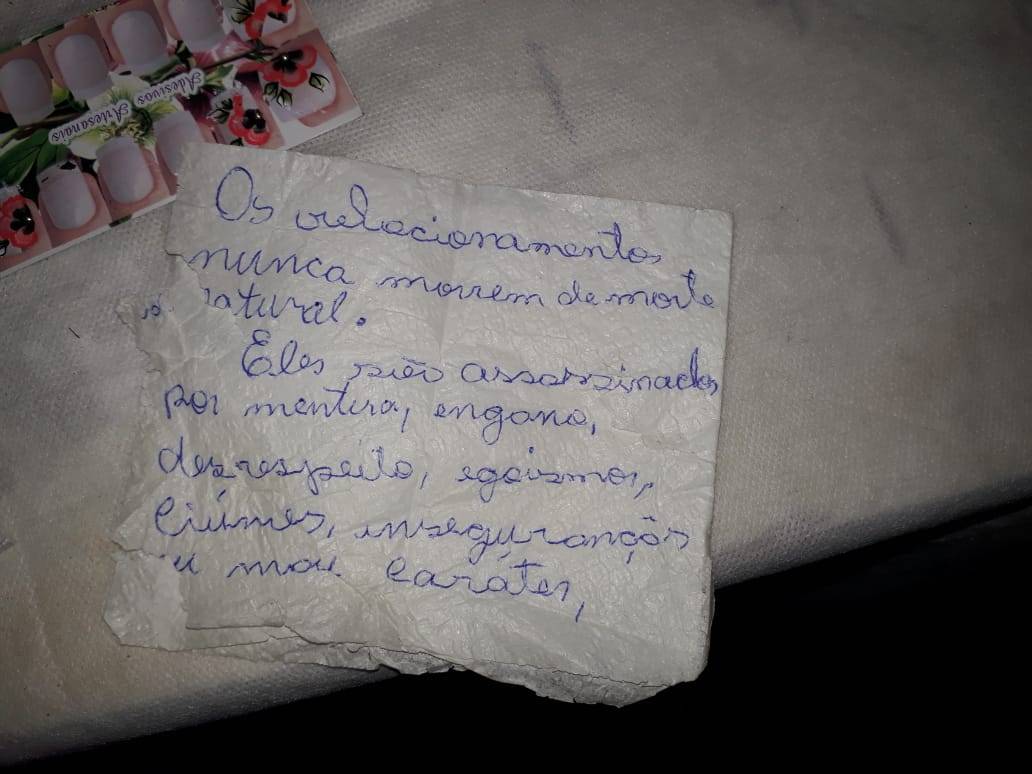 Adesivos
Artesanais
Os relacionamentos
nunca morrem de morte
natural.
Eles são assassinados
por mentira, engano,
desrespeito, egoismos,
Ciúmes, inseguranças
mau Caráter,